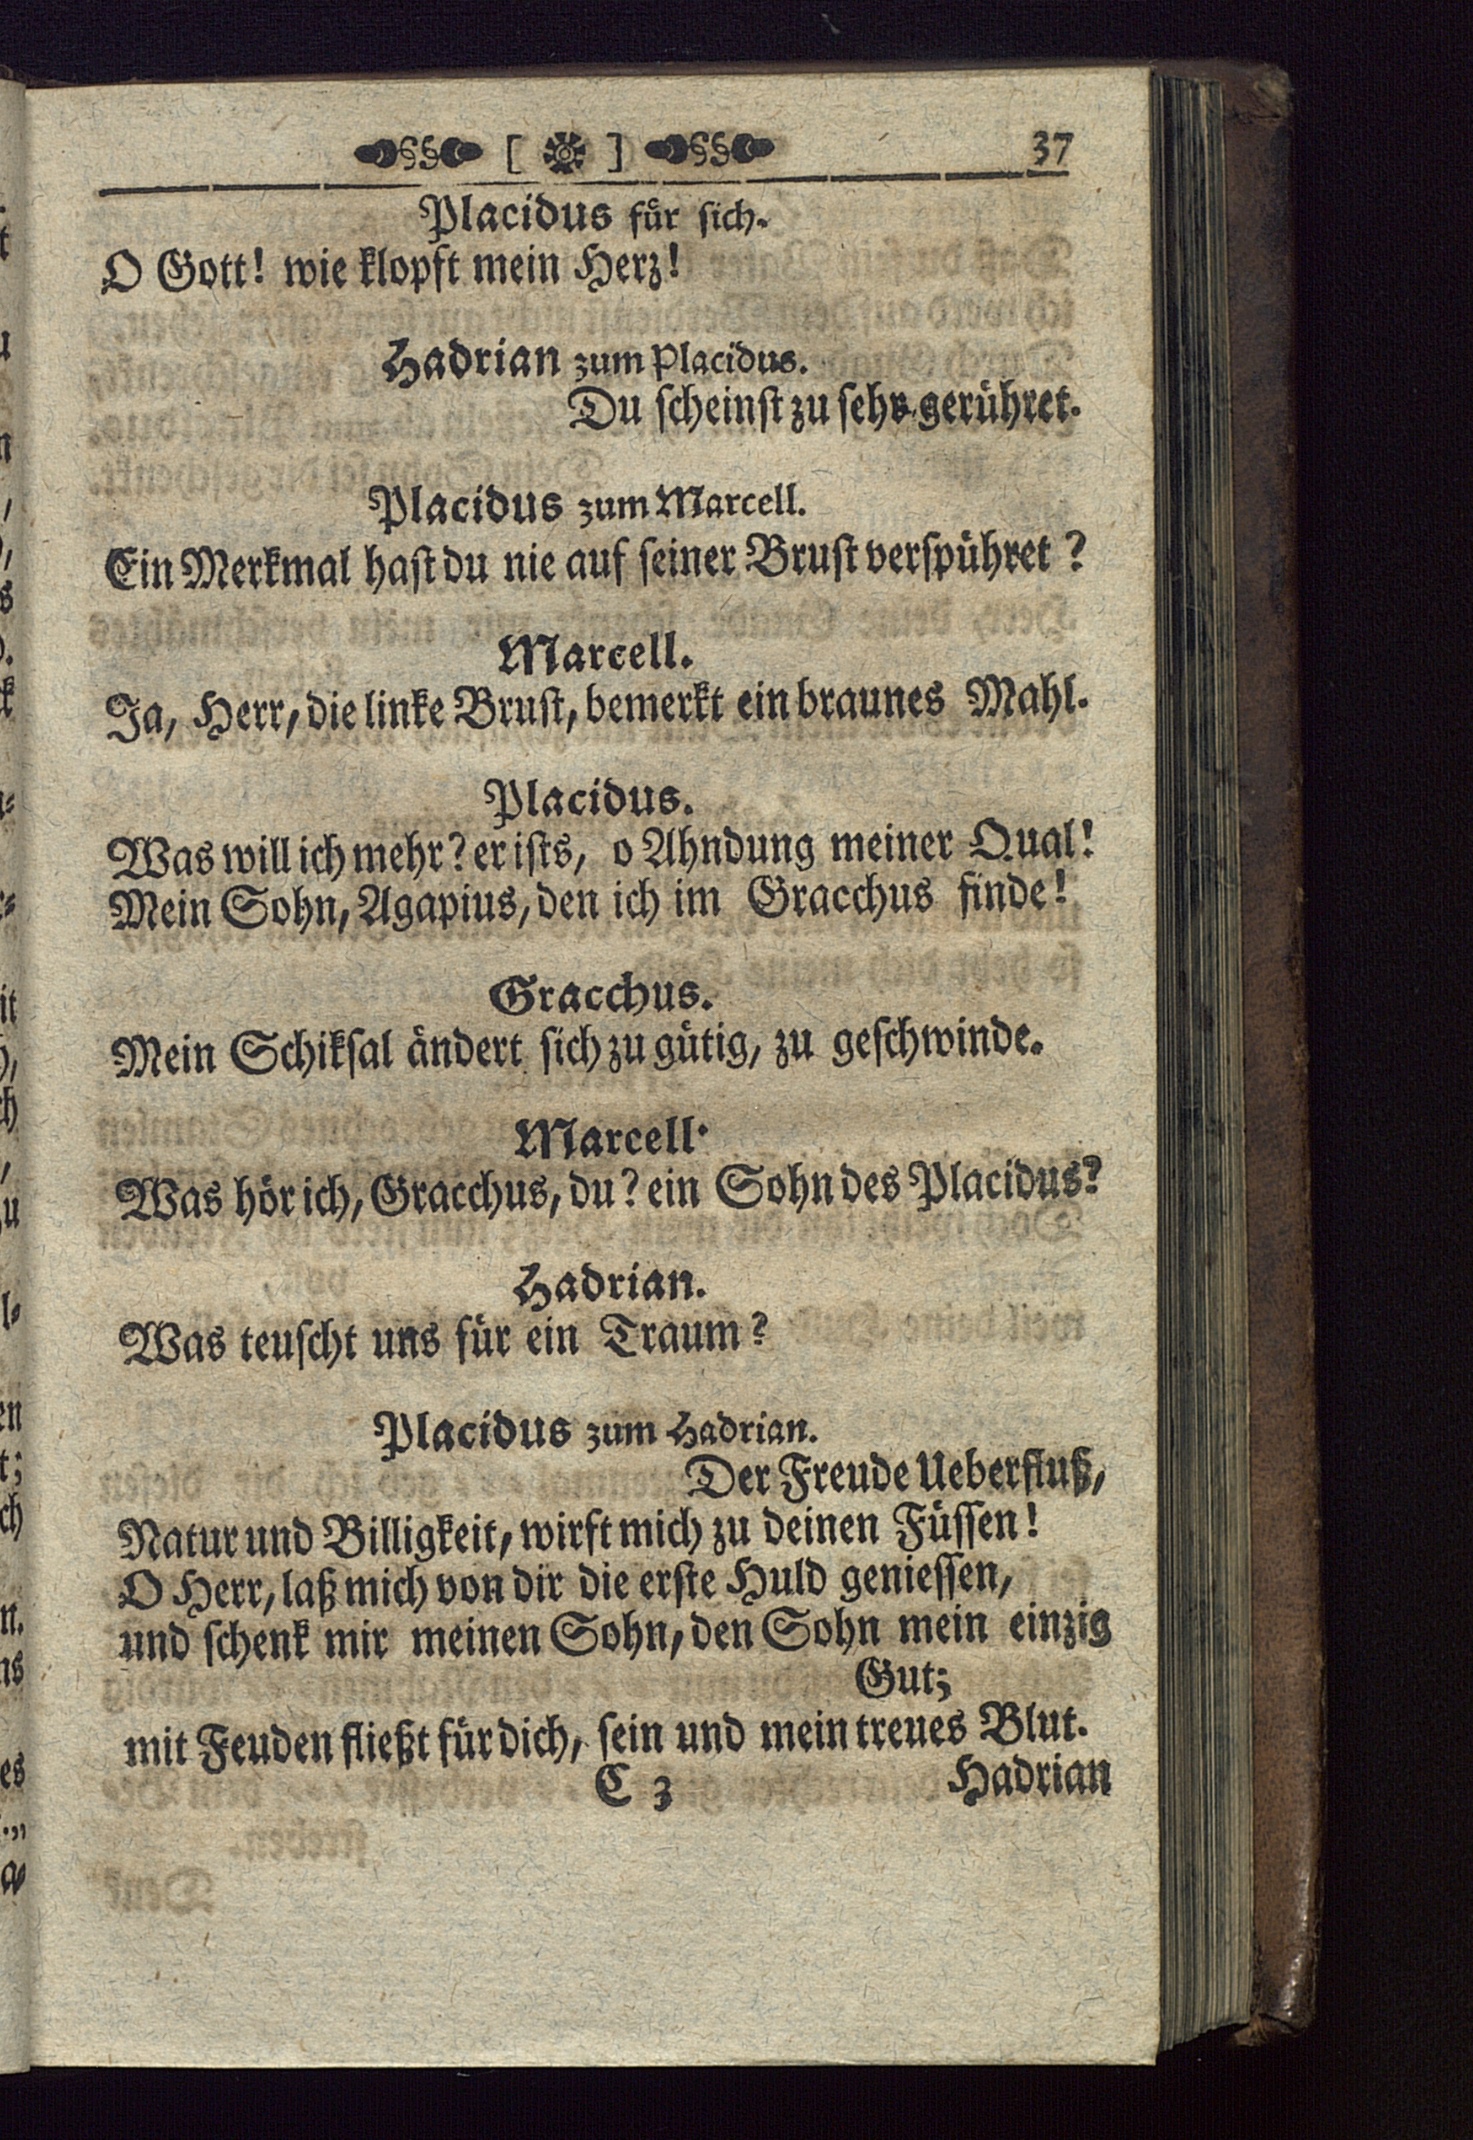 [ ] 37
Placidus für sich.
O Gott! wie klopft mein Herz!
Hadrian zum Placidus.
Du scheinst zu sehr gerühret.
Placidus zum Marcell.
Ein Merkmal hast du nie auf seiner Brust verspühret?
Marcell.
Ja, Herr, die linke Brust, bemerkt ein braunes Mahl.
Placidus.
Was will ich mehr? er ists, o Ahndung meiner Qual!
Mein Sohn, Agapius, den ich im Gracchus finde!
Gracchus.
Mein Schiksal ändert sich zu gütig, zu geschwinde.
Marcell.
Was hör ich, Gracchus, du? ein Sohn des Placidus?
Hadrian.
Was teuscht uns für ein Traum?
Placidus zum Hadrian.
Der Freude Ueberfluß,
Natur und Billigkeit, wirft mich zu deinen Füssen!
O Herr, laß mich von dir die erste Huld geniessen,
und schenk mir meinen Sohn, den Sohn mein einzig
Gut;
mit Feuden fließt für dich, sein und mein treues Blut.
C 3 Hadrian